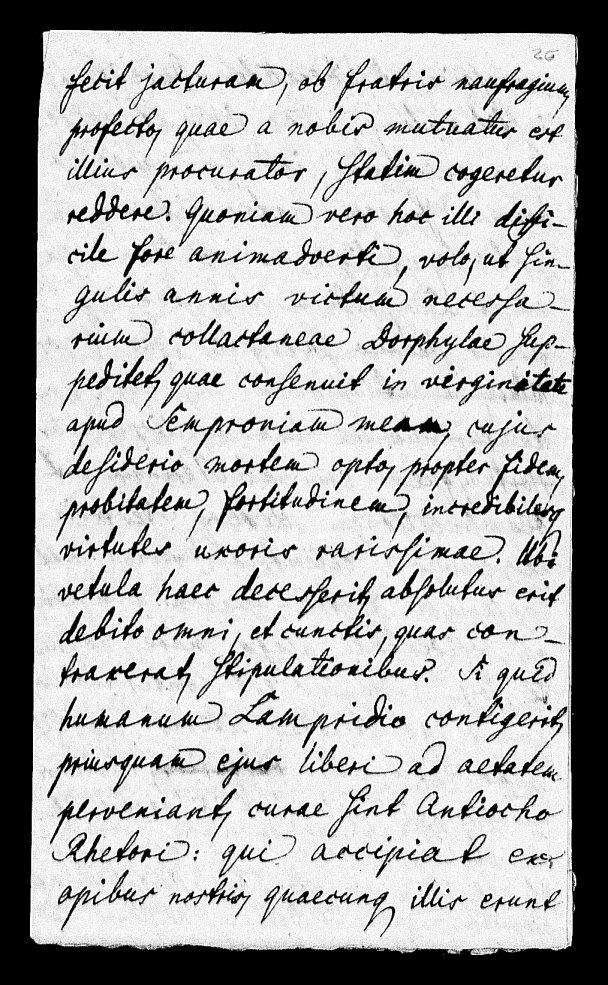 26
fecit jacturam, ob fratris naufragium,
profecto, quae a nobis mutuatus est
illius procurator, statim cogeretur
reddere. Quoniam vero hoc illi diffi-
cile fore animadverti, volo, ut sin-
gulis annis victum necessa-
rium collactaneae Dorphylae sup-
peditet, quae consenuit in virginitate
apud Semproniam meam, cujus
desiderio mortem opto, propter fidem,
probitatem, fortitudinem, incredibilesq
virtutes uxoris rarissimae. Ubi
vetula haec decesserit, absolutus erit
debito omni, et cunctis, quas con-
traxerat, stipulationibus. Si quid
humanum Lampridio contigerit,
priusquam ejus liberi ad aetatem
perveniant, curae sint Antiocho
Rhetori: qui accipiat ex
opibus nostris, quaecunq illis erunt